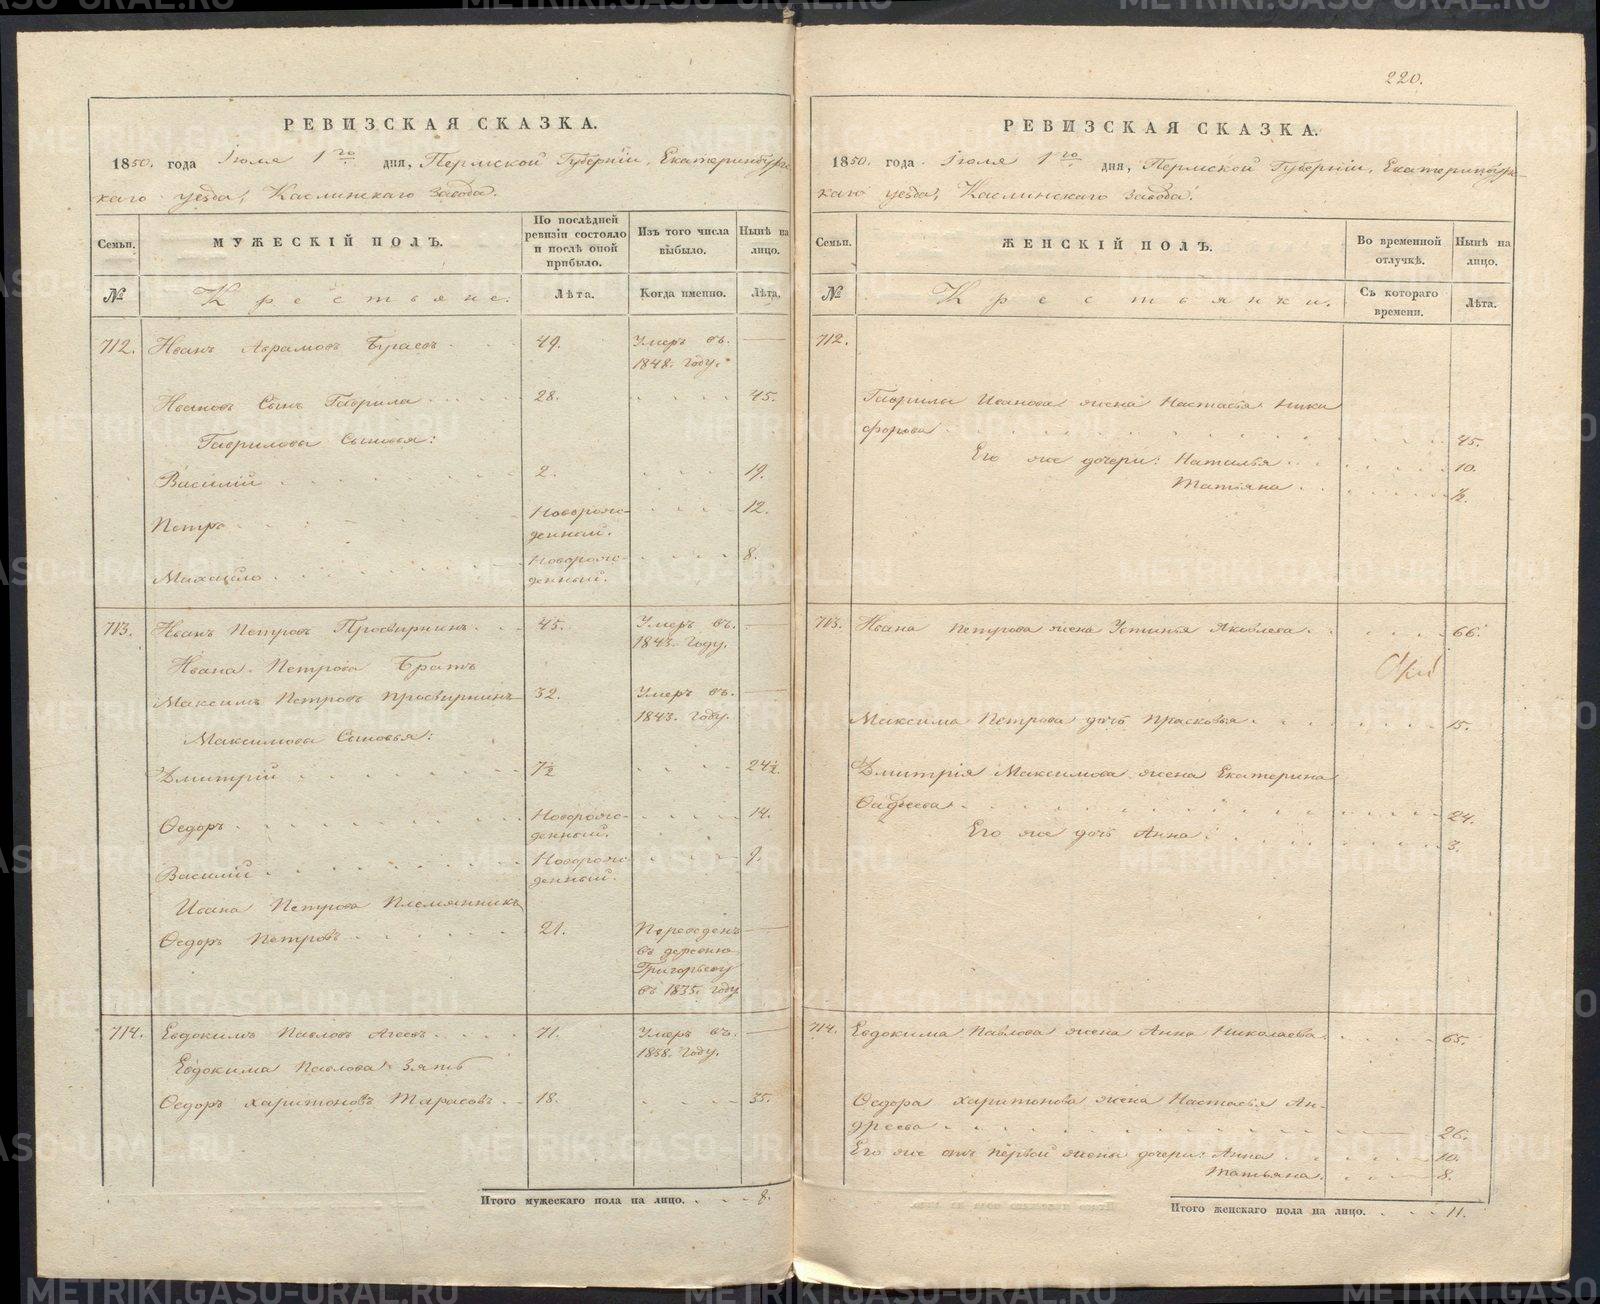 РЕВИЗСКАЯ СКАЗКА.
1850. года Іюля 1го дня, Пермской Губерніи, Екатеринбургс-
каго уезда, Каслинскаго Завода.
Семьи.
МУЖЕСКІЙ ПОЛЪ.
По послѣдней
ревизіи состояло
и послѣ оной
прибыло.
Изъ того числа
выбыло.
Нынѣ на
лицо.
№
Крестьяне.
Лѣта.
Когда именно.
Лѣта.
712. Иванъ Аврамовъ 49. Умеръ въ.
1848. году.
Ивановъ Сынъ Гаврила 28. 45.
Гавриловы Сыновья:
Василий 2. 19.
Петръ Новорож-
денный. 12.
Михайло Новорож-
денный. 8.
713. Иванъ Петровъ Просвирнинъ 45. Умеръ въ.
1843. году.
Ивана Петрова Братъ
Максимъ Петровъ Просвирнинъ 32. Умеръ въ.
1843. году.
Максимовы Сыновья:
Дмитрій 7½ 24½.
Ѳедоръ Новорож-
денный. 14.
Василий Новорож-
денный. 9.
Ивана Петрова Племянникъ
Ѳедоръ Петровъ 21. Переведенъ
въ деревню
Григорьеву
въ 1835. году
714. Евдокимъ Павловъ Агеевъ 71. Умеръ въ.
1838. году.
Евдокима Павлова Зять
Ѳедоръ Харитоновъ Тарасовъ 18. 35.
Итого мужескаго пола на лицо. 8.
220.
РЕВИЗСКАЯ СКАЗКА.
1850. года Іюля 1го дня, Пермской Губерніи, Екатеринбургс-
каго уезда, Каслинскаго Завода.
Семьи.
ЖЕНСКІЙ ПОЛЪ.
Во временной
отлучкѣ.
Нынѣ на
лицо.
№
Крестьянки.
Съ котораго
времени.
Лѣта.
712.
Гаврилы Иванова жена Настасья Ники
форова 45.
Его же дочери: Наталья 10.
Татьяна ½.
713. Ивана Петрова жена Устинья Яковлева 66.
Максима Петрова дочь Прасковья 15.
Дмитрія Максимова жена Екатерина
Ѳадѣева 24.
Его же дочь Анна 3.
714. Евдокима Павлова жена Анна Николаева 65.
Ѳедора Харитонова жена Настасья Ан-
дреева 26.
Его же отъ первой жены дочери: Анна 10.
Татьяна 8.
Итого женскаго пола на лицо. 11.
METRIKI.GASO-URAL.RU